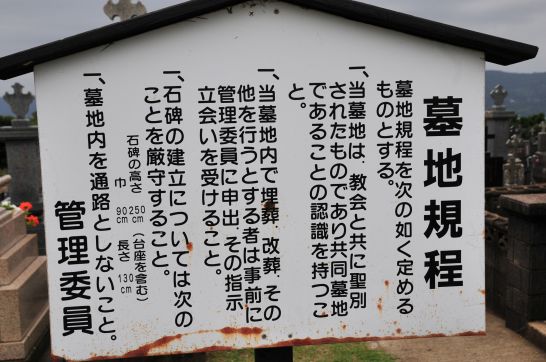 墓地規程
墓地規程を次の如く定める
ものとする。
一、当墓地は、教会と共に聖別
されたものであり共同墓地
であることの認識を持つこ
と。
一、当墓地内で埋葬、改葬、その
他を行うとする者は事前に
管理委員に申出、その指示
立会いを受けること。
一、石碑の建立については次の
ことを厳守すること。
石碑の高さ 250cm（台座を含む）
巾 90cm 長さ 130cm
一、墓地内を通路としないこと。
管理委員